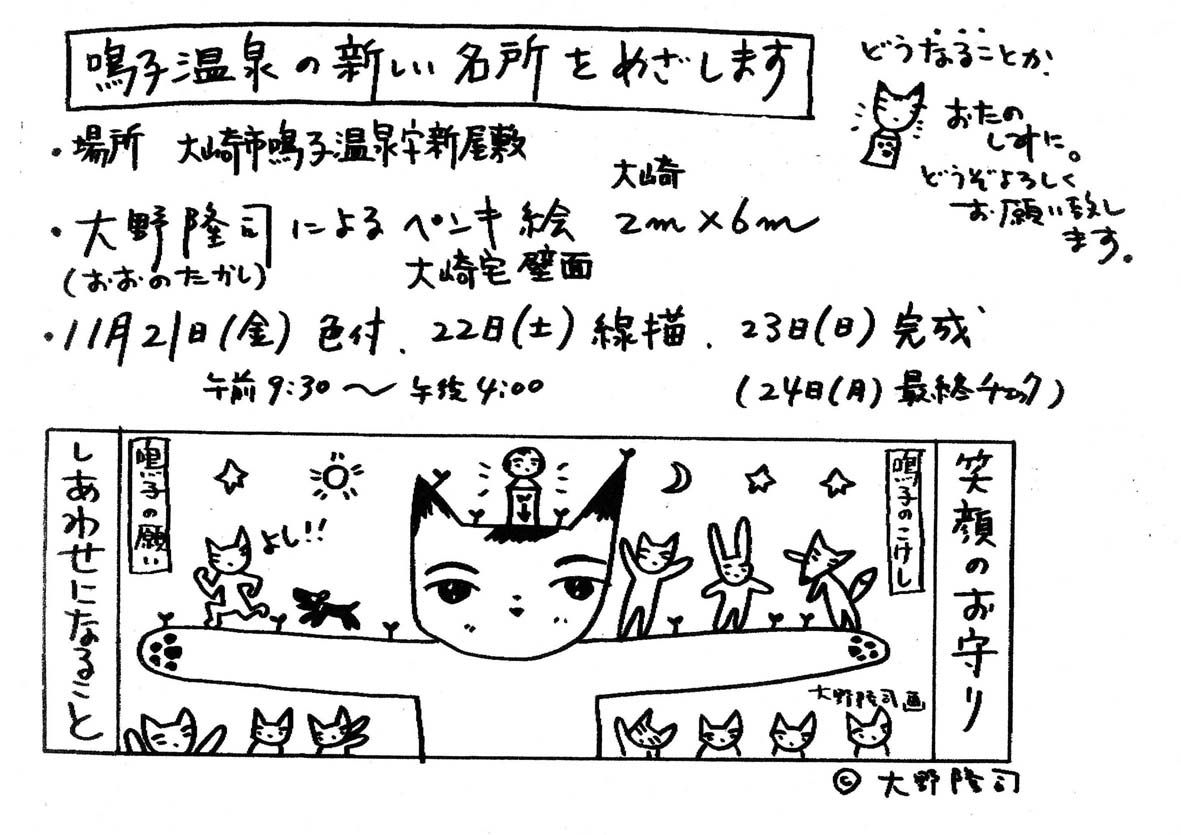 鳴子温泉の新しい名所をめざします
どうなることか、
おたの
しみに。
どうぞよろしく
お願い致し
ます。
・場所 大崎市鳴子温泉字新屋敷
大崎
・大野隆司によるペンキ絵 2m×6m
(おおのたかし) 大崎宅壁面
・11月21日(金)色付、22日(土)線描、23日(日)完成
午前9:30〜午後4:00 (24日(月)最終チェック)
しあわせになること
鳴子の願い
よし!!
鳴子のこけし
笑顔のお守り
大野隆司画
© 大野隆司